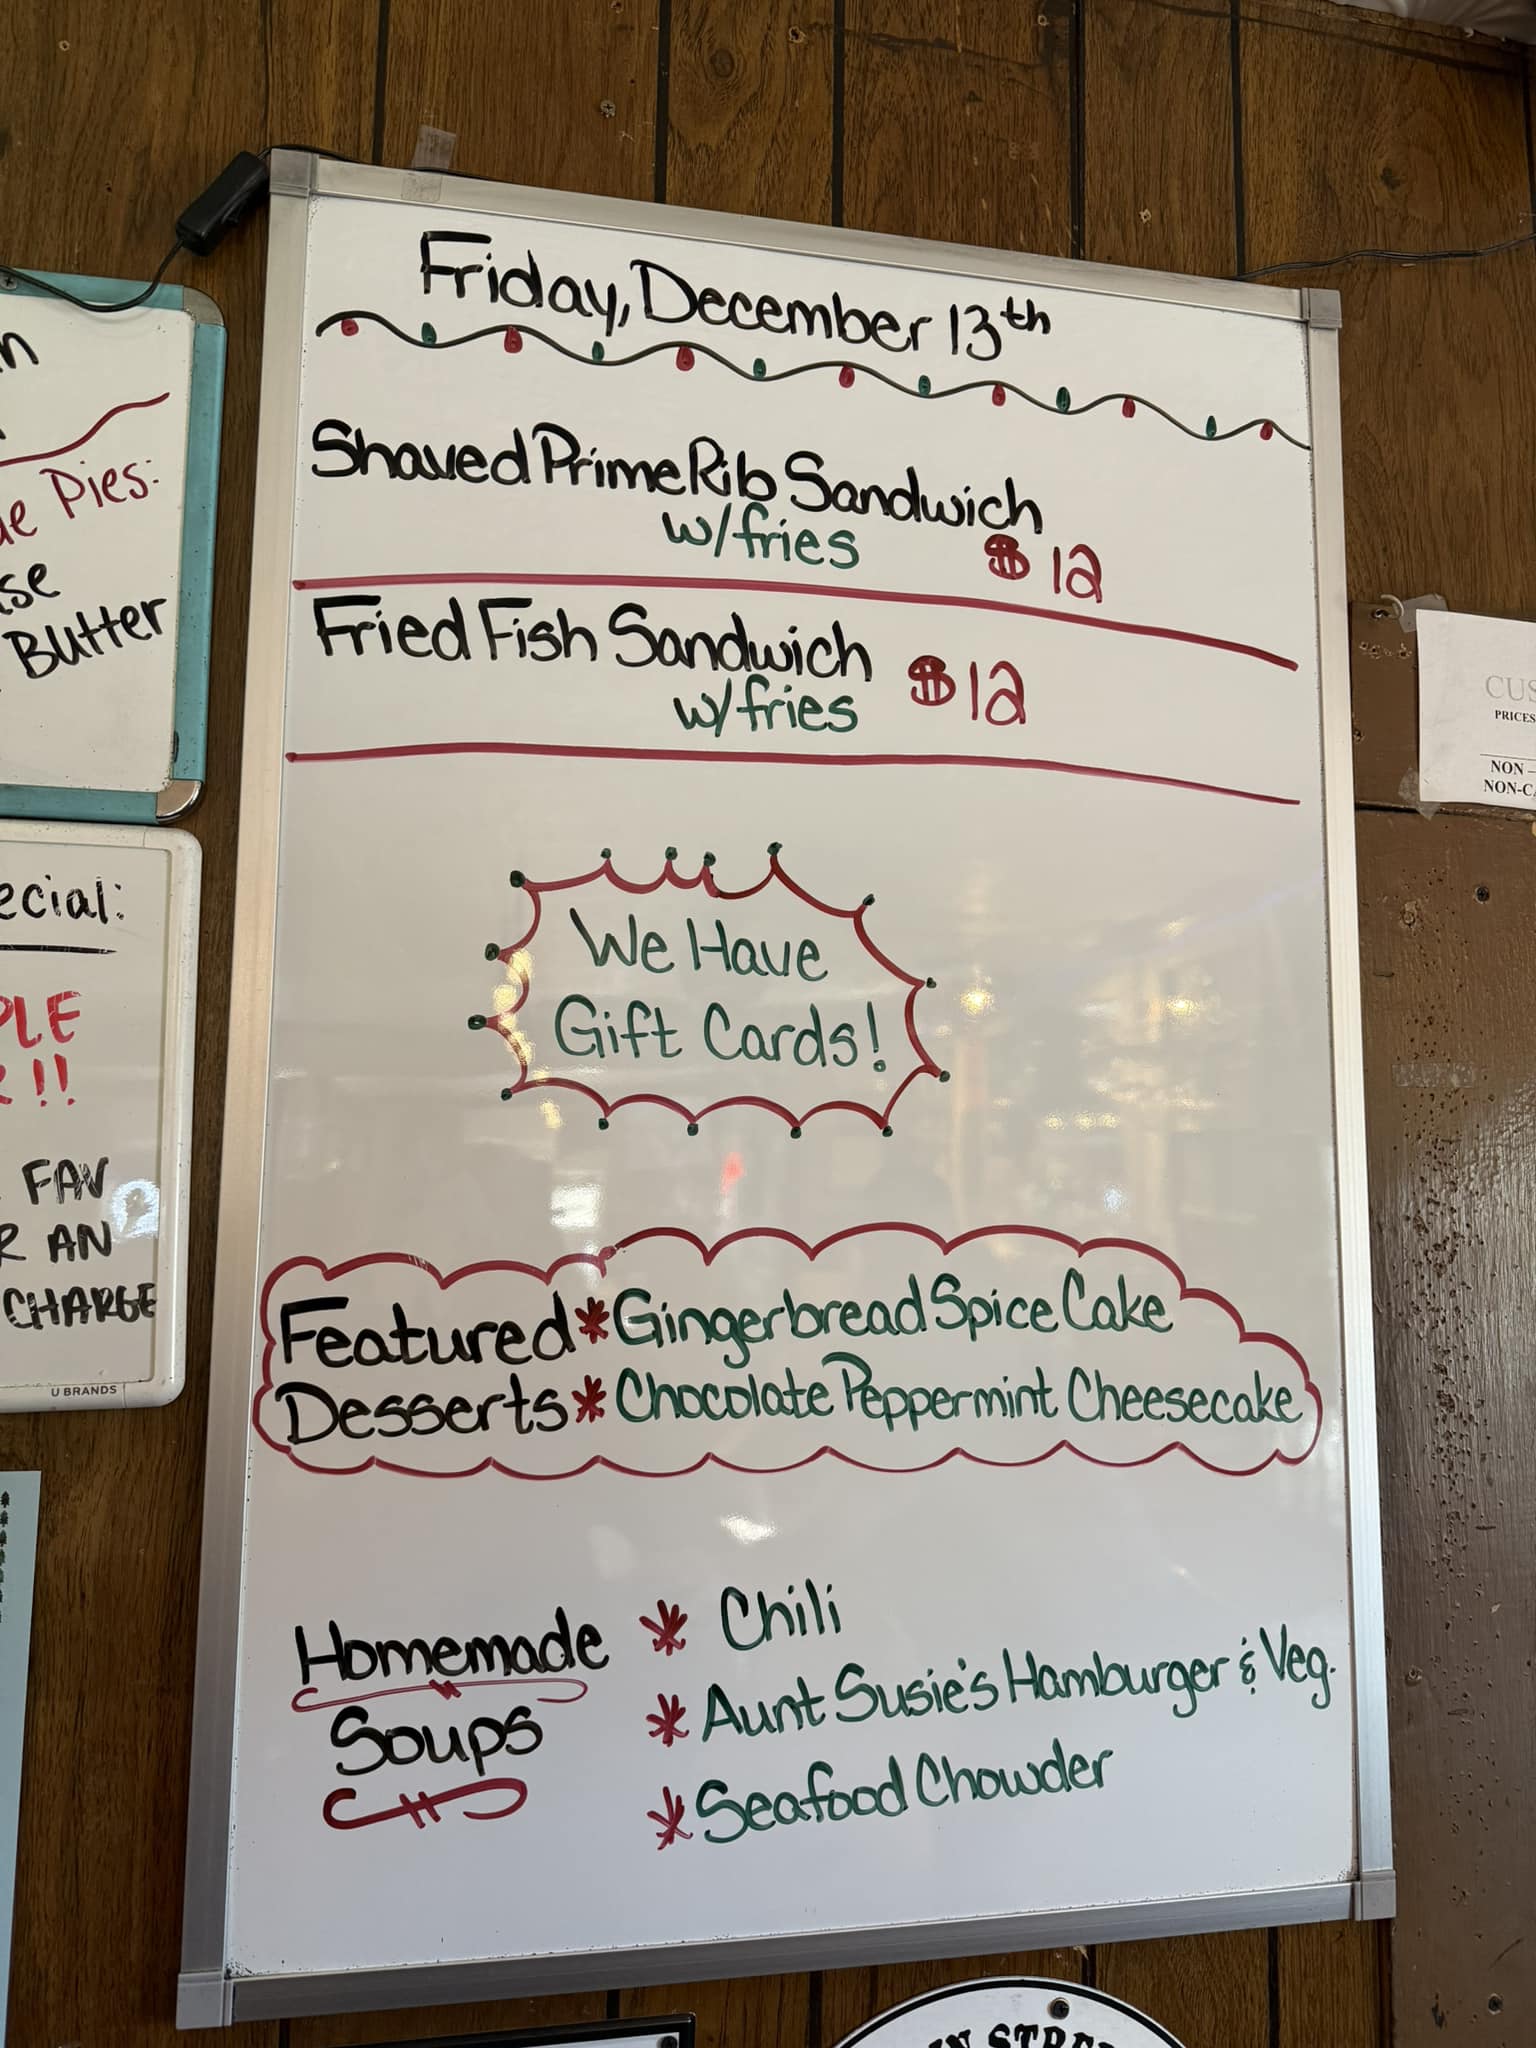 Friday, December 13th
Shaved Prime Rib Sandwich
w/fries $12
Fried Fish Sandwich $12
w/fries
We Have
Gift Cards!
Featured * Gingerbread Spice Cake
Desserts * Chocolate Peppermint Cheesecake
Homemade
Soups
* Chili
* Aunt Susie's Hamburger & Veg.
* Seafood Chowder
Pies:
Butter
FAV
AN
CHARGE
U BRANDS
PRICES
NON –